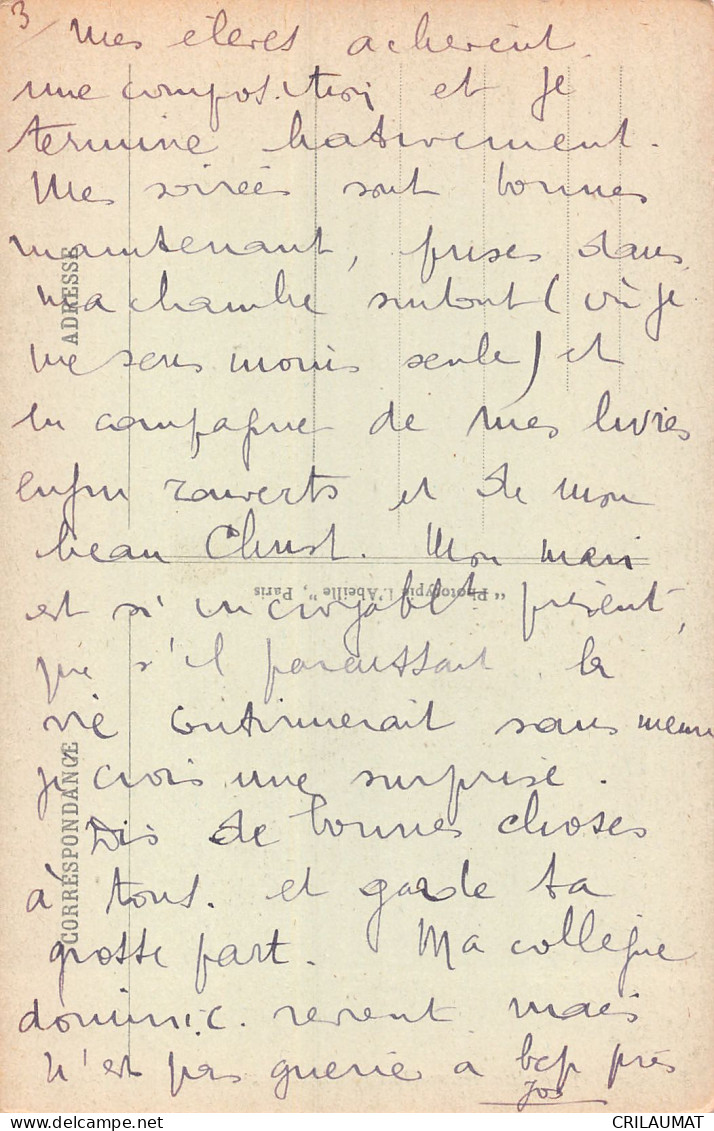 3/ Mes élèves achèvent
une composition et je
termine hativement.
Mes soirées sont bonnes
maintenant, prises dans
ma chambre surtout (où je
me sens moins seule) et
en compagnie de mes livres
enfin rouverts et de mon
beau Christ. Mon mari
est si incroyablt présent,
que s'il paraissait la
vie continuerait sans même
je crois une surprise.
Dis de bonnes choses
à tous. et garde ta
grosse part. Ma collègue
dominic. revient mais
n'est pas guérie a bcp près
Jos
ADRESSE
CORRESPONDANCE
"Phototypie l'Abeille", Paris
CRILAUMAT